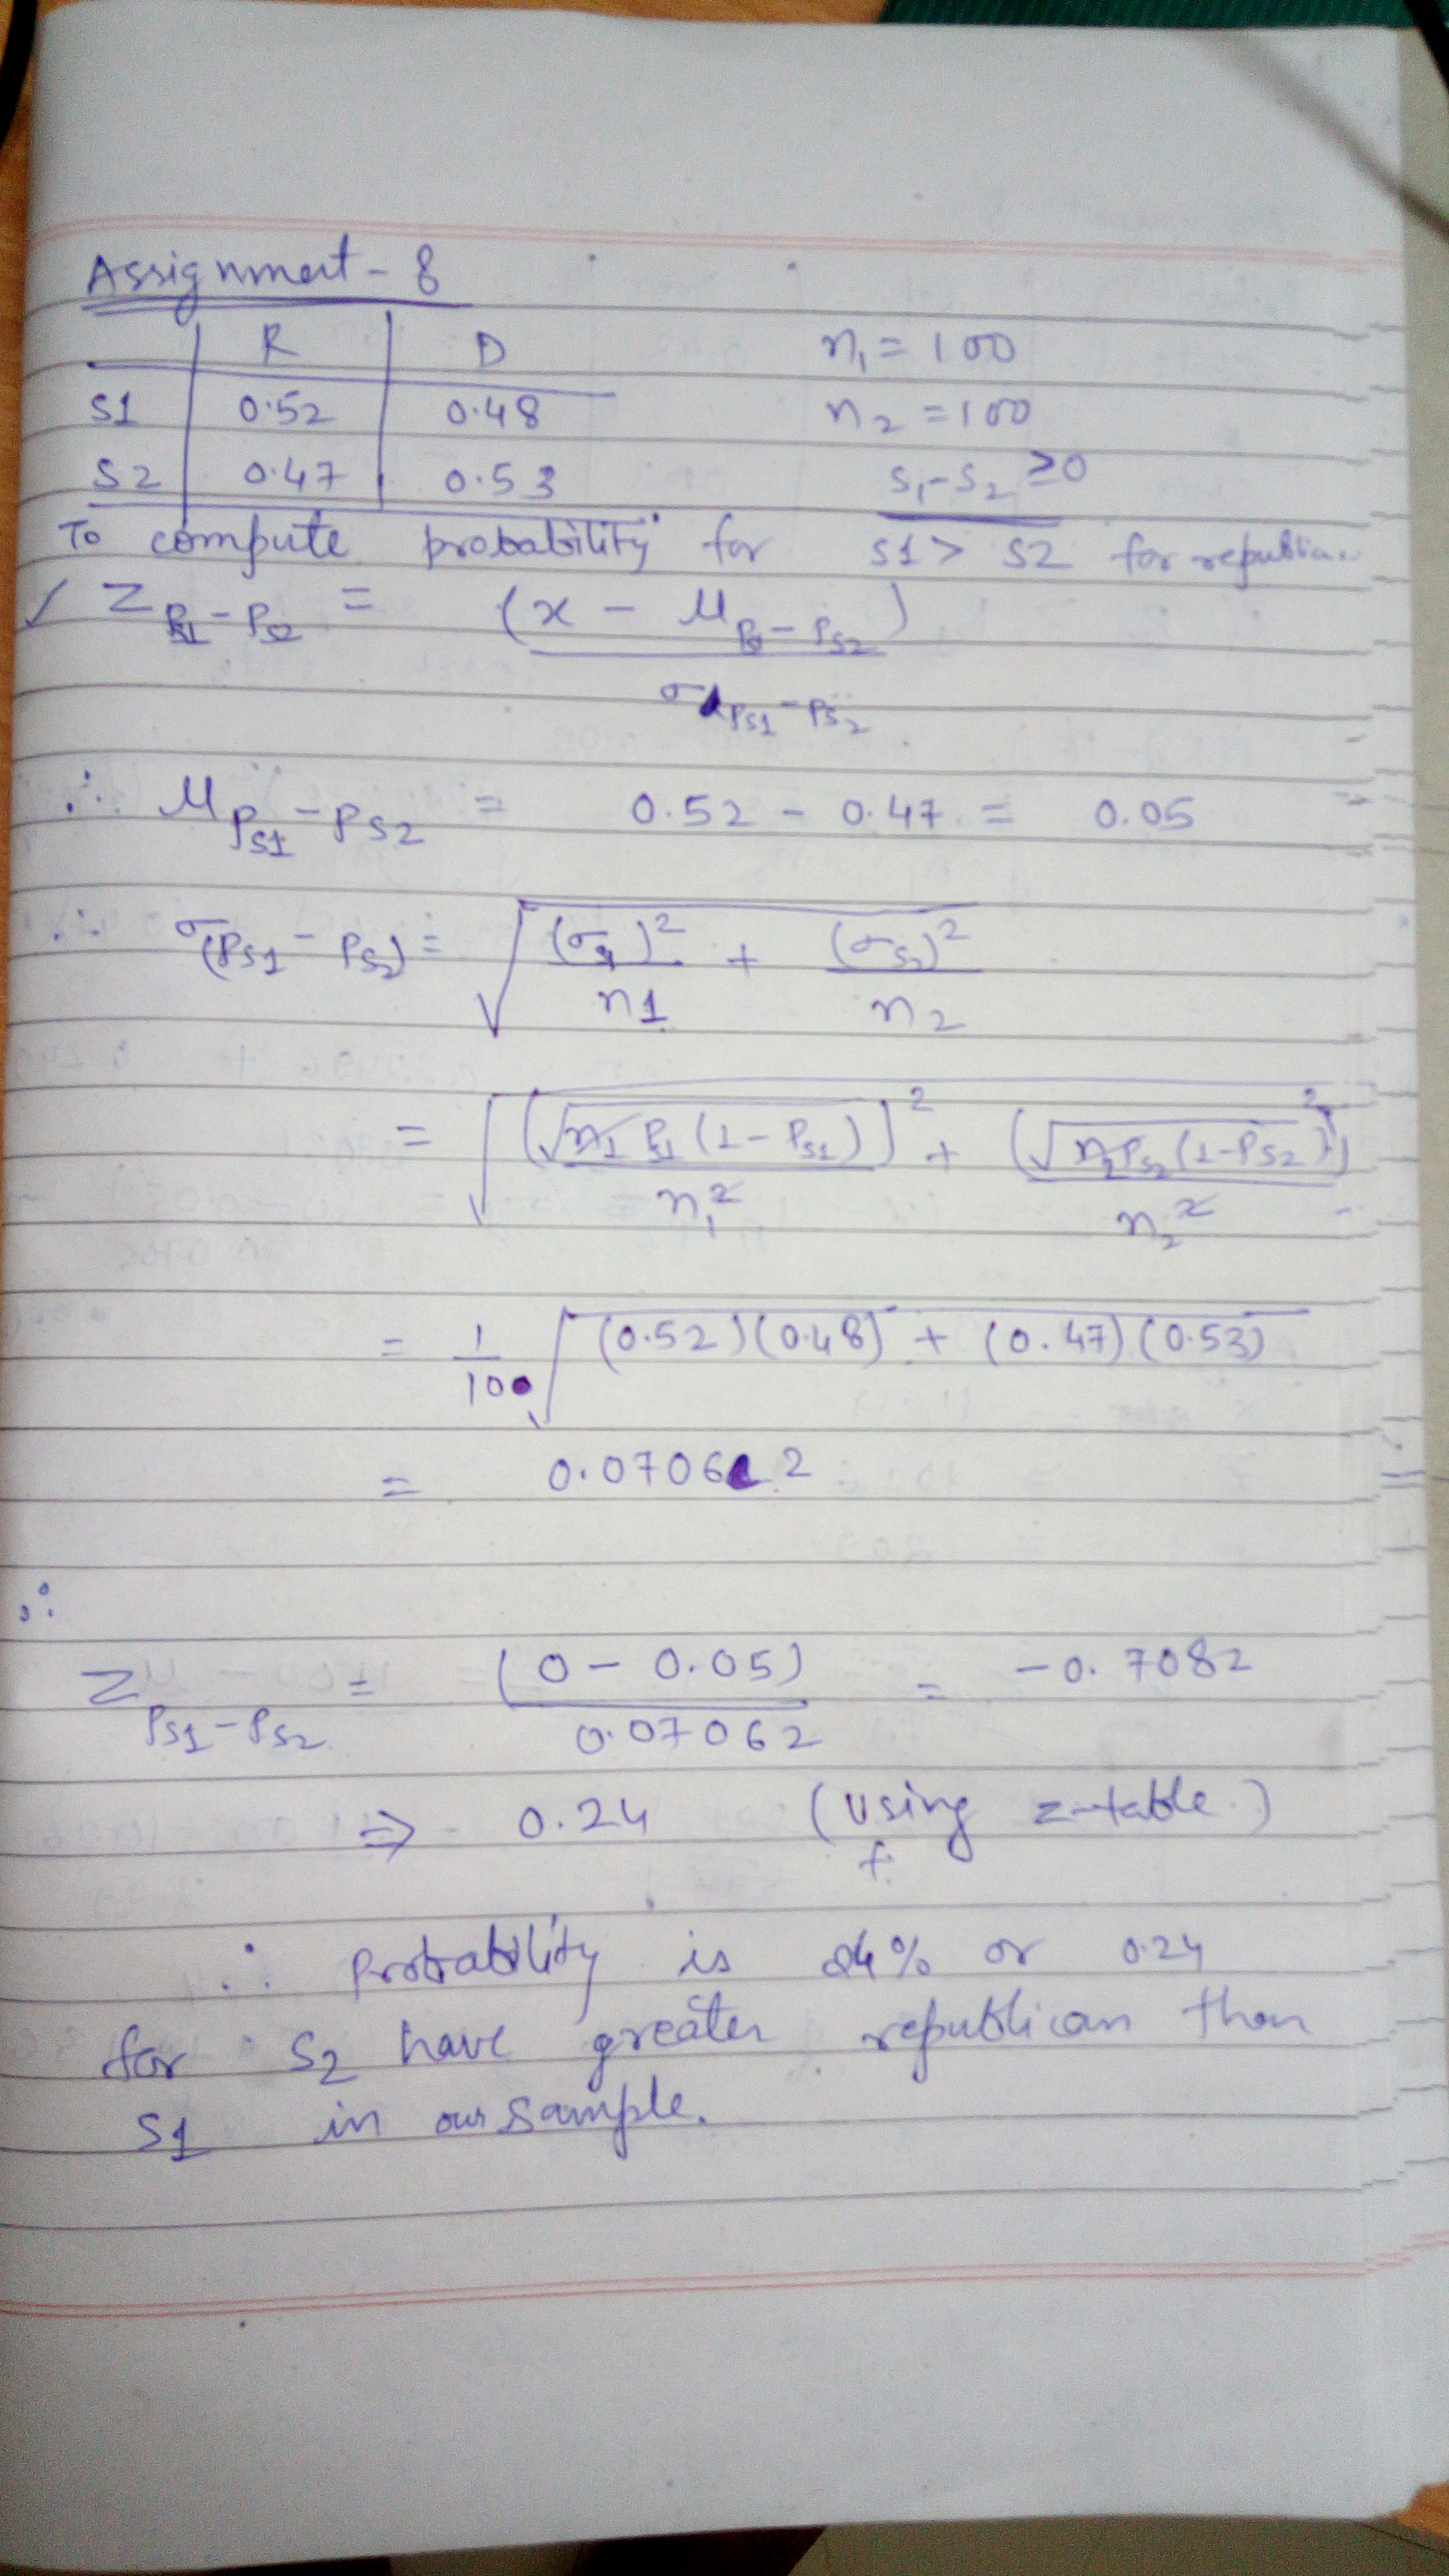 Assignment - 8
R D n₁ = 100
S1 0.52 0.48 n₂ = 100
S2 0.47 0.53 S₁-S₂ ≥0
To compute probability for S1 > S2 for republican
✓ Z P_S1 - P_S2 = (x - μ P_S1 - P_S2)
σ P_S1 - P_S2
∴ μ P_S1 - P_S2 = 0.52 - 0.47 = 0.05
∴ σ(P_S1 - P_S2) = √ (σ_S1)² / n1 + (σ_S2)² / n₂
= √ (√n₁ P_S1 (1 - P_S1))² / n₁² + (√n₂ P_S2 (1 - P_S2))² / n₂²
= 1/10 √ (0.52)(0.48) + (0.47)(0.53)
= 0.0706 2
∴
Z P_S1 - P_S2 = (0 - 0.05) / 0.07062 = -0.7082
⇒ 0.24 (using z-table)
∴ probability is 24% or 0.24
for S₂ have greater republican than
S1 in our sample.